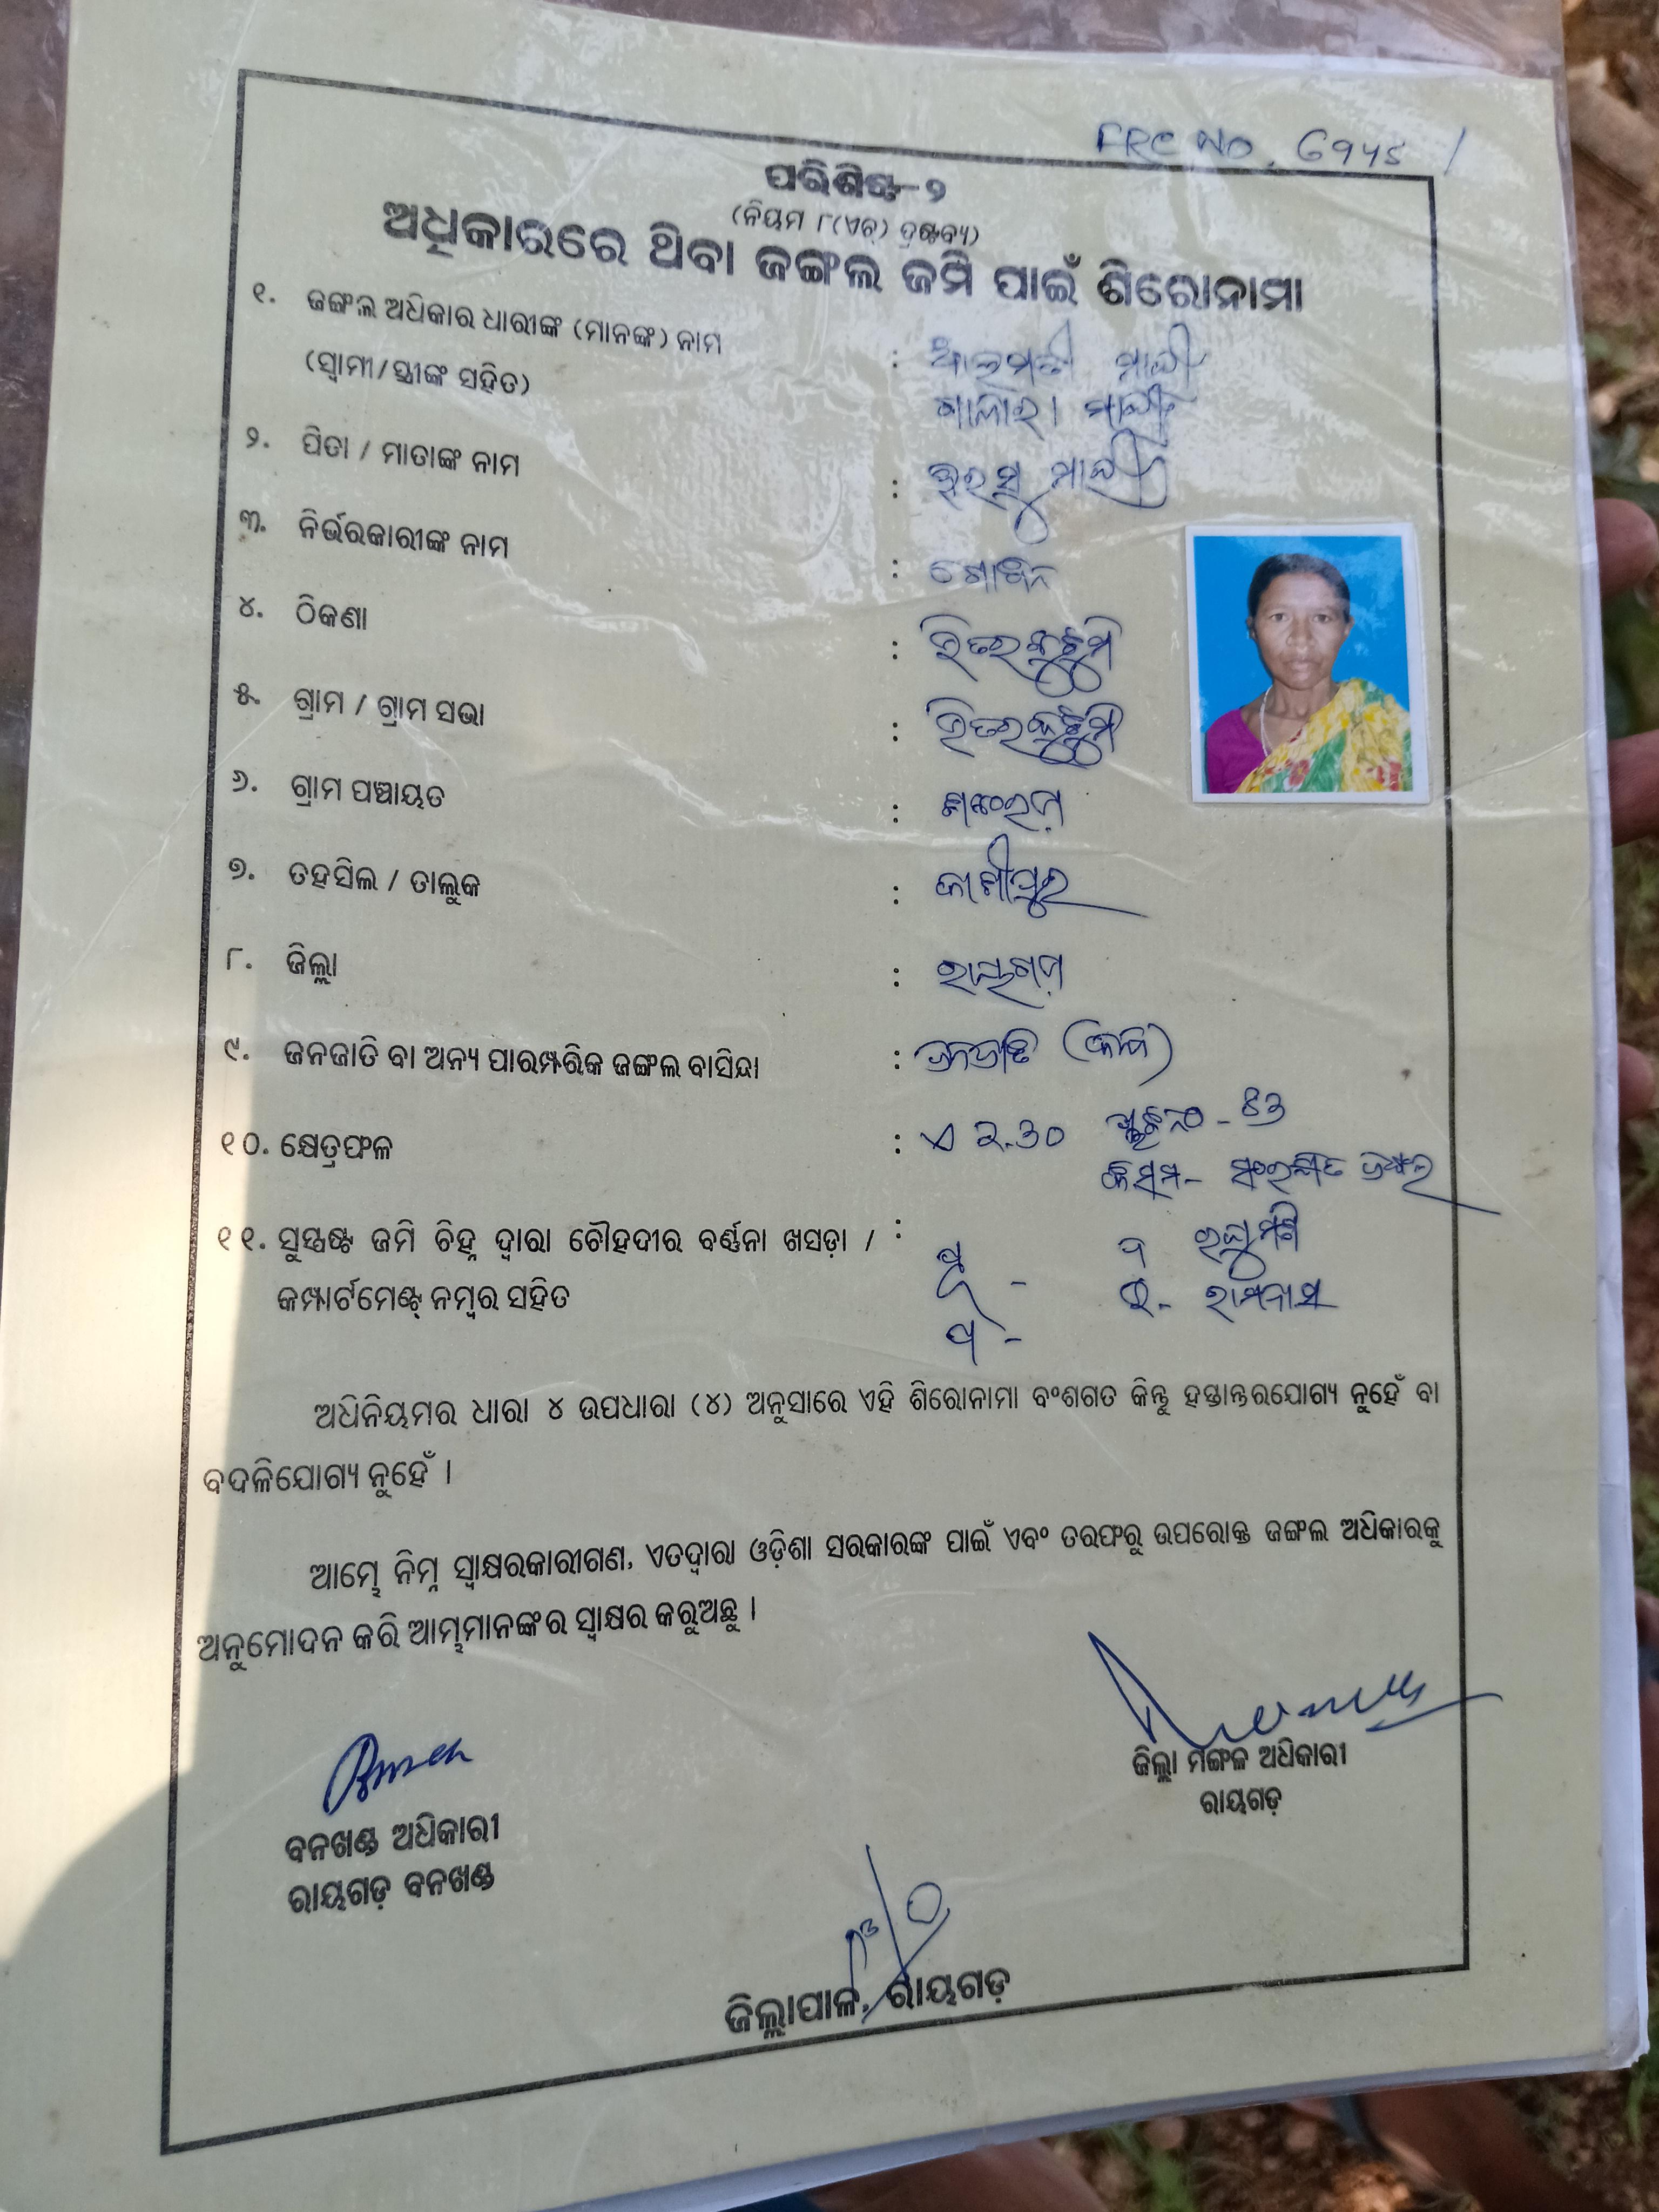 FRC NO. ୯୨୪୫ /
ପରିଶିଷ୍ଟ-୨
(ନିୟମ ୮(ଏଚ୍) ଦ୍ରଷ୍ଟବ୍ୟ)
ଅଧିକାରରେ ଥିବା ଜଙ୍ଗଲ ଜମି ପାଇଁ ଶିରୋନାମା
୧. ଜଙ୍ଗଲ ଅଧିକାର ଧାରୀଙ୍କ (ମାନଙ୍କ) ନାମ : ମାଝୀ
(ସ୍ୱାମୀ/ସ୍ତ୍ରୀଙ୍କ ସହିତ) ମାଝୀ
୨. ପିତା / ମାତାଙ୍କ ନାମ : ମାଝୀ
୩. ନିର୍ଭରକାରୀଙ୍କ ନାମ :
୪. ଠିକଣା :
୫. ଗ୍ରାମ / ଗ୍ରାମ ସଭା :
୬. ଗ୍ରାମ ପଞ୍ଚାୟତ :
୭. ତହସିଲ / ତାଲୁକ : କାଶୀପୁର
୮. ଜିଲ୍ଲା : ରାୟଗଡ଼
୯. ଜନଜାତି ବା ଅନ୍ୟ ପାରମ୍ପରିକ ଜଙ୍ଗଲ ବାସିନ୍ଦା : ଜନଜାତି
୧୦. କ୍ଷେତ୍ରଫଳ : ଏ ୨.୩୦
କିସମ- ସଂରକ୍ଷିତ ଜଙ୍ଗଲ
୧୧. ସୁସ୍ପଷ୍ଟ ଜମି ଚିହ୍ନ ଦ୍ୱାରା ଚୌହଦୀର ବର୍ଣ୍ଣନା ଖସଡ଼ା / : ଦ ରଘୁମଣି
କମ୍ପାର୍ଟମେଣ୍ଟ୍ ନମ୍ବର ସହିତ ପୂ - ଉ-
ପ -
ଅଧିନିୟମର ଧାରା ୪ ଉପଧାରା (୪) ଅନୁସାରେ ଏହି ଶିରୋନାମା ବଂଶଗତ କିନ୍ତୁ ହସ୍ତାନ୍ତରଯୋଗ୍ୟ ନୁହେଁ ବା
ବଦଳିଯୋଗ୍ୟ ନୁହେଁ ।
ଆମ୍ଭେ ନିମ୍ନ ସ୍ୱାକ୍ଷରକାରୀଗଣ, ଏତଦ୍ୱାରା ଓଡ଼ିଶା ସରକାରଙ୍କ ପାଇଁ ଏବଂ ତରଫରୁ ଉପରୋକ୍ତ ଜଙ୍ଗଲ ଅଧିକାରକୁ
ଅନୁମୋଦନ କରି ଆମ୍ଭମାନଙ୍କର ସ୍ୱାକ୍ଷର କରୁଅଛୁ ।
ଜିଲ୍ଲା ମଙ୍ଗଳ ଅଧିକାରୀ
ରାୟଗଡ଼
ବନଖଣ୍ଡ ଅଧିକାରୀ
ରାୟଗଡ଼ ବନଖଣ୍ଡ
ଜିଲ୍ଲାପାଳ, ରାୟଗଡ଼